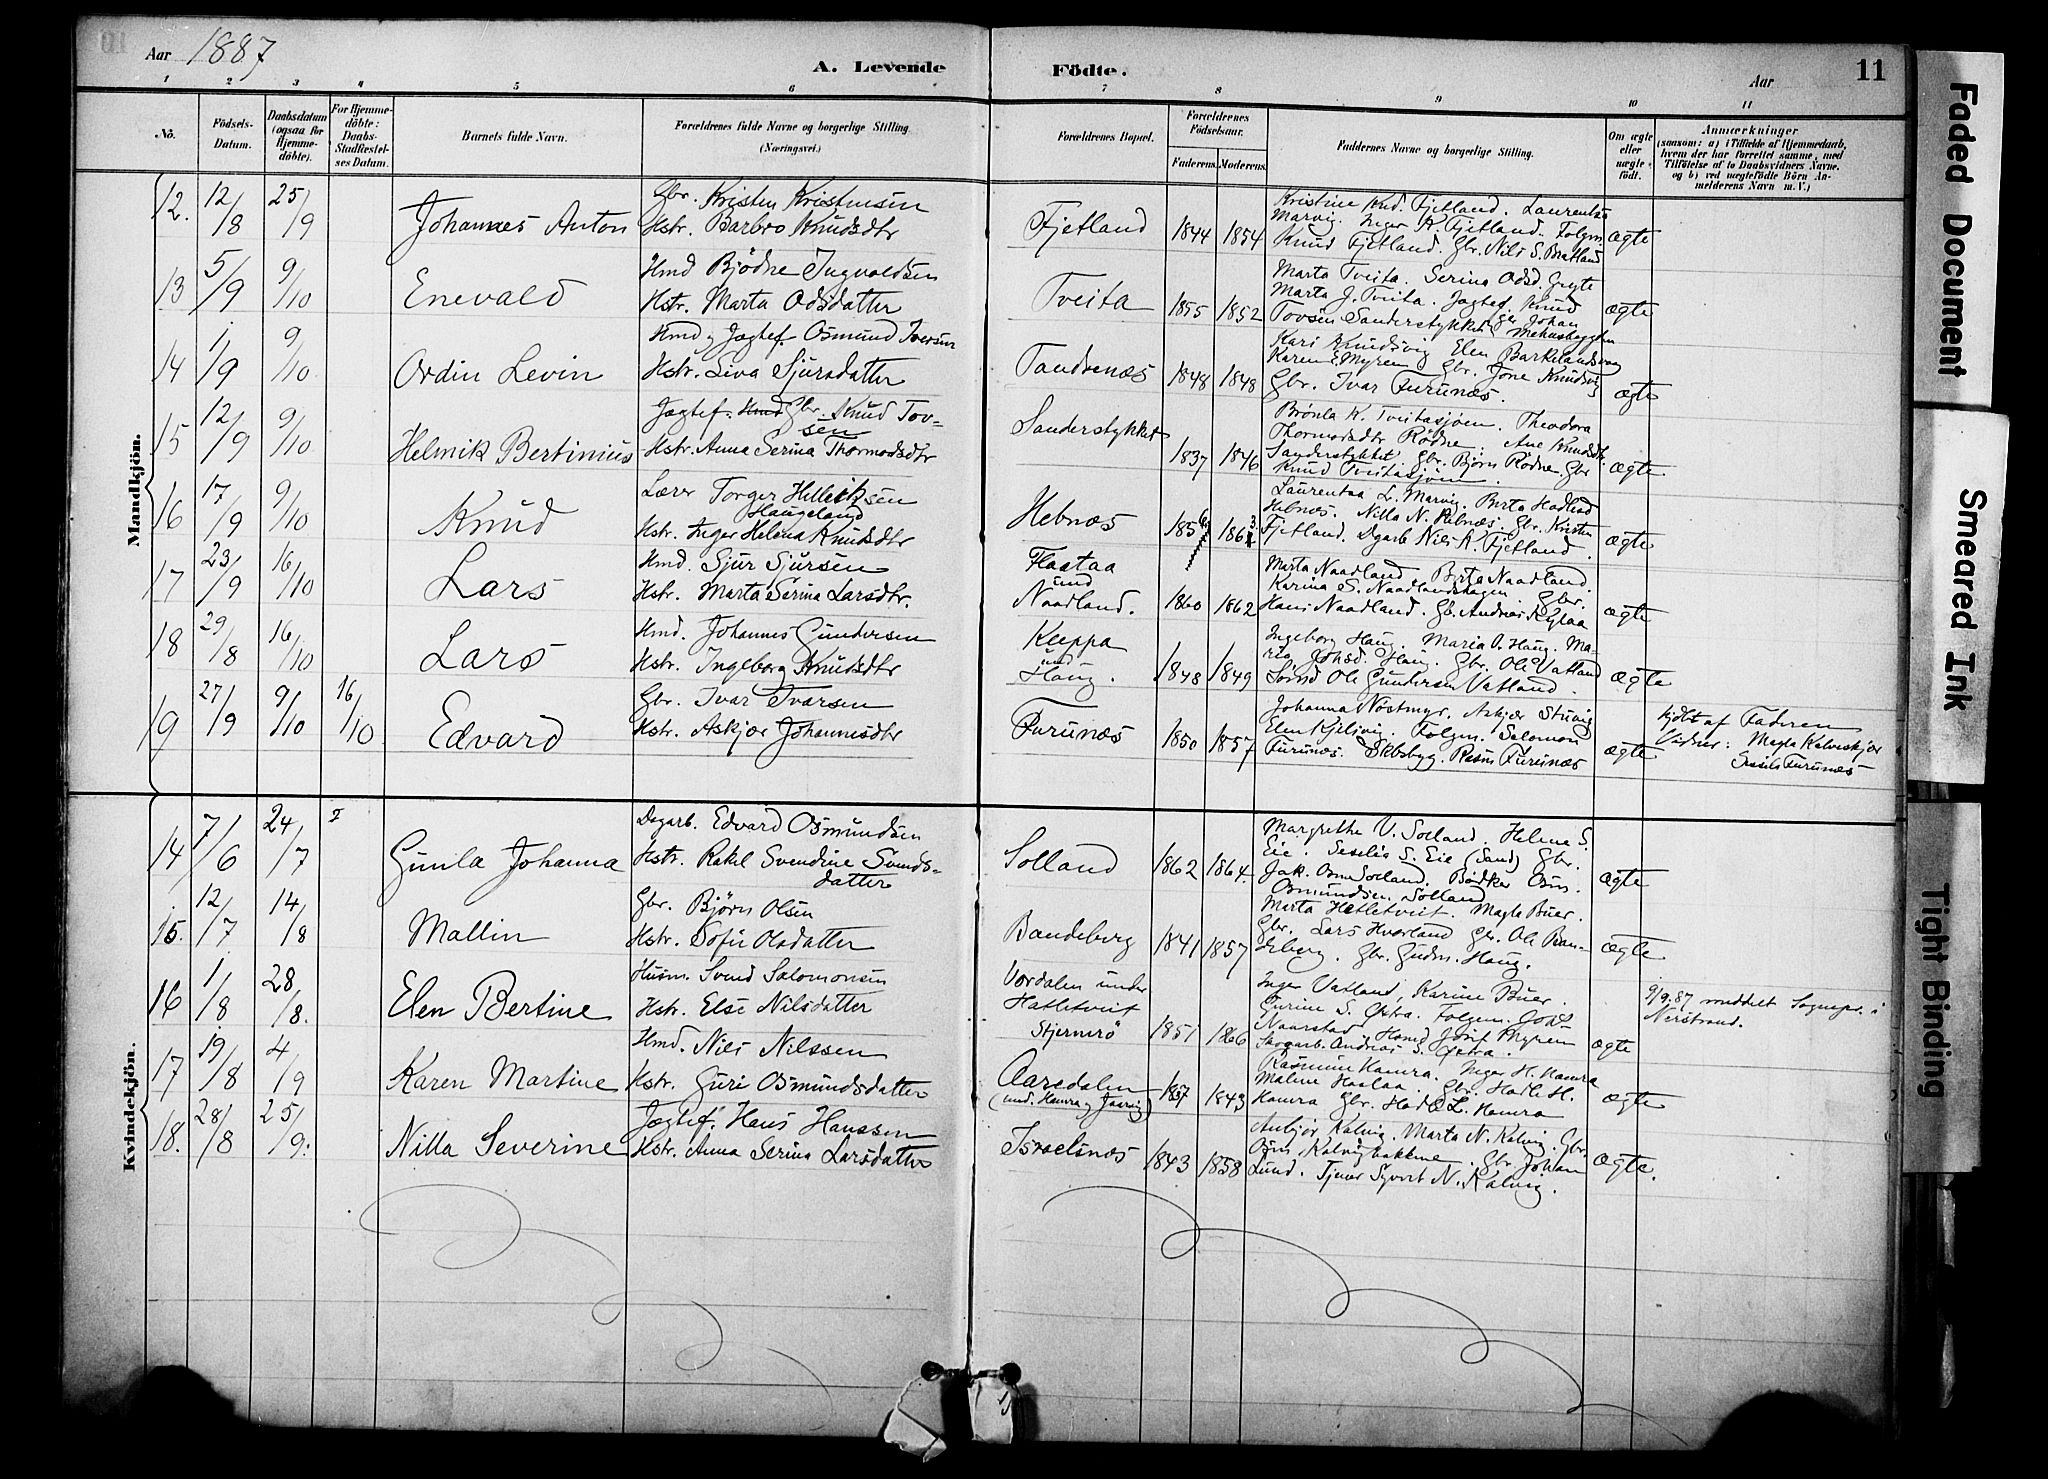 Aar 1887
A. Levende Födte.
Aar
11
1 2 3 4 5 6 7 8 9 10 11
Nö.
Födsels-Datum.
Daabsdatum (ogsaa for Hjemme-döbte).
For Hjemme-döbte: Daabs-Stadfæstel-ses Datum.
Barnets fulde Navn.
Forældrenes fulde Navne og borgerlige Stilling.
(Næringsvei.)
Forældrenes Bopæl.
Forældrenes Födselsaar.
Faderens. Moderens.
Faddernes Navne og borgerlige Stilling.
Om ægte eller uægte födt.
Anmærkninger
(saasom: a) i Tilfælde af Hjemmedaab,
hvem der har forrettet samme, med
Tilföielse af to Daabsvidners Navne.
og b) ved uægtefödte Börn An-
melderens Navn m. V.)
Mandkjön.
12. 12/8 25/9 Johannes Anton
Gbr. Kristen Kristensen
Hstr. Barbro Knudsdtr
Fjetland 1844 1854
Kristine Knd. Fjetland. Laurentse
Marvig. Inger K. Fjetland. Folgm
Knud Fjetland. Gbr. Nils S. Bratland
ægte
13 5/9 9/10 Enevald
Hmd Bjödne Ingvaldsen
Hstr. Marta Odsdatter
Tveita 1855 1852
Marta Tveita. Serina Odsd. Gryte
Marta J. Tveita. Jagtef. Knud
Tovsen Sanderstykket. Johan
ægte
14 1/9 9/10 Ordin Levin
Hmd og Jagtef. Osmund Iversen
Hstr. Liva Sjursdatter
Tandrenæs 1848 1848
Kari Knudsvig Elen Barkelandsvaag
Karen E Myren Gbr. Jone Knudsvig
Gbr. Ivar Furunæs.
ægte
15 12/9 9/10 Helmik Bertinius
Jagtef. Hmd Gbr. Knud Tov-
sen
Hstr. Anna Serina Thormodsdtr
Sanderstykket 1837 1846
Brönla K. Tveitasjöen. Theodora
Thormodsdtr Rödne. Ane Knudsdtr
Sanderstykket Gbr. Björn Rödne. Gbr
Knud Tveitasjöen.
ægte
16 17/9 9/10 Knud
Lærer Torger Helliksen
Haugeland
Hstr. Inger Helena Knudsdtr
Hebnæs 1856 1863
Laurentsa L. Marvig. Berta Hadland
Hebnæs. Nilla N. Hebnæs. Gbr. Kristen
Fjetland. Dgarb Nils K. Fjetland.
ægte
17 23/9 16/10 Lars
Hmd. Sjur Sjursen
Hstr. Marta Serina Larsdtr.
Flaataa
und
Naadland. 1860 1862
Marta Naadland Berta Naadland.
Karina S. Naadlandshagen Gbr.
Hans Naadland. Gb. Andreas Kyllaa
ægte
18 29/8 16/10 Lars
Hmd. Johannes Gundersen
Hstr. Ingeborg Knudsdtr
Kleppa
und
Haug. 1848 1849
Ingeborg Haug. Maria O. Haug. Ma-
ria Johsd. Haug. Gbr. Ole Vatland
Ole Gundersen Vatland.
ægte
19 27/9 9/10 16/10 Edvard
Gbr. Ivar Ivarsen
Hstr. Askjær Johannesdtr
Furunæs 1850 1857
Johanna Nöstmyr. Askjær Struvig
Elen Kjeilvig. Folgm. Salomon
Furunæs. Skbsbyg. Rasm Furunæs
ægte
hjdbt af Faderen
Vidner: Magla Kalveskjær
Sissela Furunæs
Kvindekjön.
14 7/6 24/7 Gunla Johanna
Dagarb. Edvard Osmundsen
Hstr. Rakel Svendine Svends-
datter
Solland 1862 1864.
Margrethe V. Solland. Helene S.
Eie. Seselia S. Eie (Sand) Gbr.
Jak. Osm Solland. Bödker Osm.
Osmundsen Solland
ægte
15. 12/7 14/8 Mallin
Gbr. Björn Olsen
Hstr. Sofie Olsdatter
Bandeberg 1841 1857
Marta Hetletveit. Magla Buer.
Gbr. Lars Hvorland Gbr. Ole Ban-
deberg. Gbr. Gudm. Haug.
ægte
16 1/8 28/8. Elen Bertine
Husm. Svend Salomonsen
Hstr. Else Nilsdatter
Vordalen under
Hatletveit
Stjernerö 1851 1866
Inger Vatland, Karine Buer.
Gurine S. Östra. Folgem.
Naarstad Hsmd Josef Myren
Andreas S. Östra.
ægte
9/9.87 meddelt Sognepr. i
Nerstrand.
17 19/8 4/9 Karen Martine
Hmd. Nils Nilssen
Hstr. Guri Osmundsdatter
Aaredalen
(und. Hamra og Jarvig) 1843
Rasmine Hamra. Inger H. Hamra
Malene Haslaa. Gbr. Hadle H.
Hamra Gbr. Hadle L. Hamra
ægte
18. 28/8 25/9. Nilla Severine
Jægtef. Hans Hanssen
Hstr. Anna Serina Larsdatter
Israelsnæs 1843 1858
Anbjör Kalvig. Marta N. Kalvig. Gbr.
Osm. Kalvigbakkene. Gbr. Johan
Lund. Tjener Syvert N. Kalvig.
ægte.
Faded Document
Smeared Ink
Tight Binding